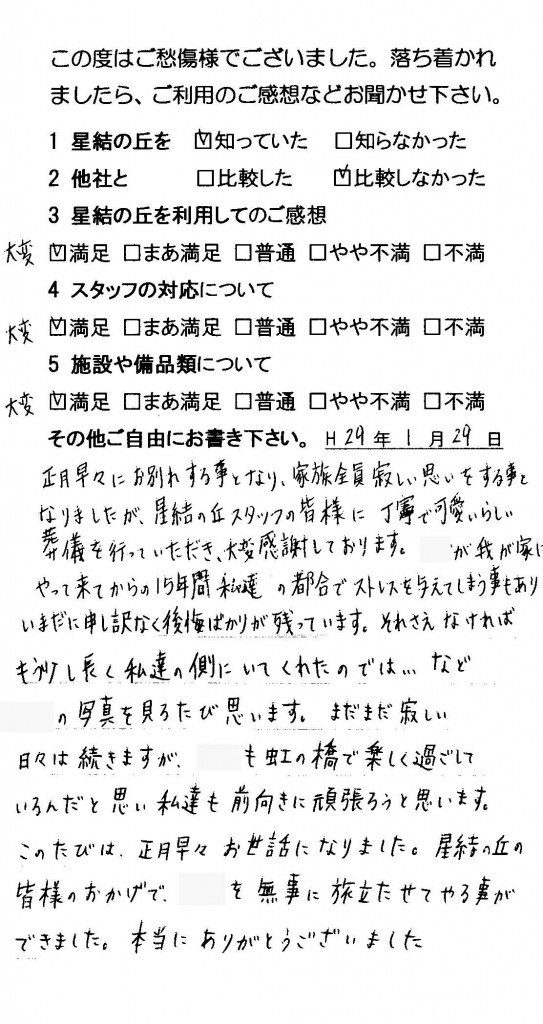 この度はご愁傷様でございました。落ち着かれ
ましたら、ご利用のご感想などお聞かせ下さい。
1 星結の丘を ☑知っていた □知らなかった
2 他社と □比較した ☑比較しなかった
3 星結の丘を利用してのご感想
大変 ☑満足 □まあ満足 □普通 □やや不満 □不満
4 スタッフの対応について
大変 ☑満足 □まあ満足 □普通 □やや不満 □不満
5 施設や備品類について
大変 ☑満足 □まあ満足 □普通 □やや不満 □不満
その他ご自由にお書き下さい。 H29年1月29日
正月早々にお別れする事となり、家族全員寂しい思いをする事と
なりましたが、星結の丘スタッフの皆様に丁寧で可愛いらしい
葬儀を行っていただき、大変感謝しております。 が我が家に
やって来てからの15年間私達の都合でストレスを与えてしまう事もあり
いまだに申し訳なく後悔ばかりが残っています。それさえなければ
もう少し長く私達の側にいてくれたのでは… など
の写真を見るたび思います。まだまだ寂しい
日々は続きますが、 も虹の橋で楽しく過ごして
いるんだと思い私達も前向きに頑張ろうと思います。
このたびは、正月早々お世話になりました。星結の丘の
皆様のおかげで、 を無事に旅立たせてやる事が
できました。本当にありがとうございました